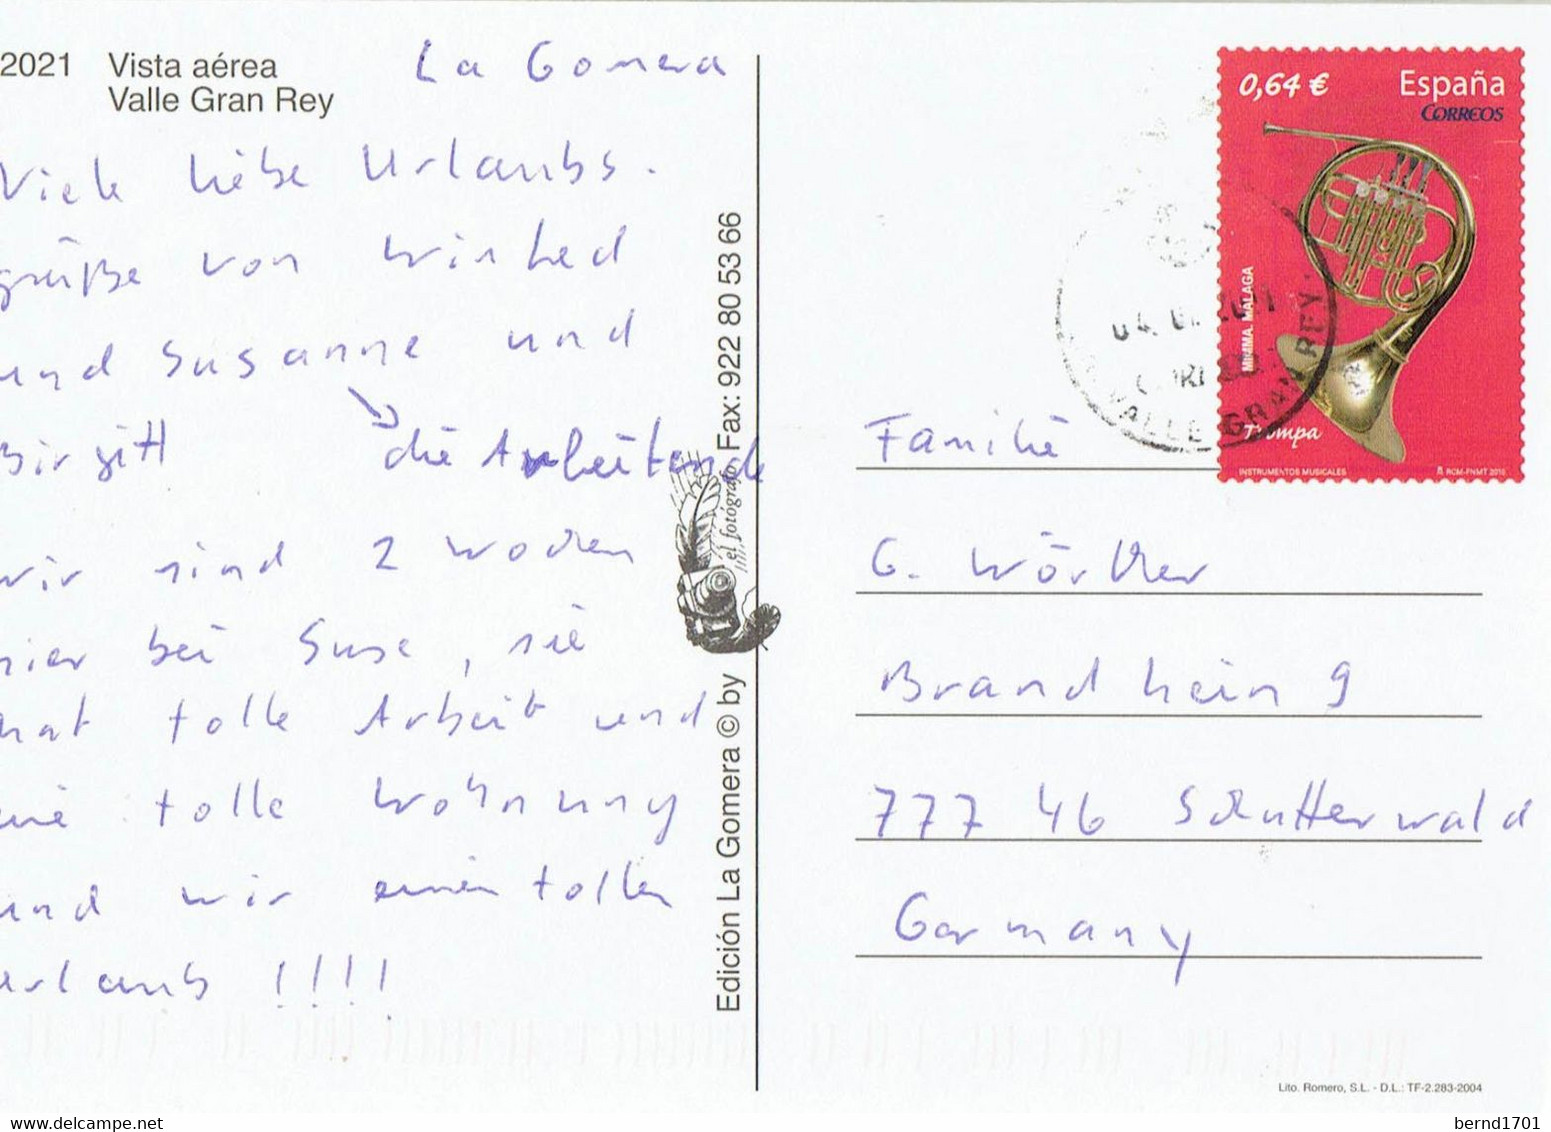 2021 Vista aérea
Valle Gran Rey
La Gomera
Viele liebe Urlaubs-
grüße von
und Susanne und
Birgitt
die Arbeitende
wir sind 2 Wochen
hier bei Suse, sie
hat tolle Arbeit und
eine tolle Wohnung
und wir einen tollen
Urlaub !!!!
Edición La Gomera © by el fotógrafo Fax: 922 80 53 66
0,64 € España
CORREOS
MIMMA. MÁLAGA
Trompa
INSTRUMENTOS MUSICALES RCM-FNMT 2010
VALLE GRAN REY
Familie
G. Wörther
Brandhein 9
777 46 Schutterwald
Germany
Lito. Romero, S.L. - D.L.: TF-2.283-2004
bernd1701